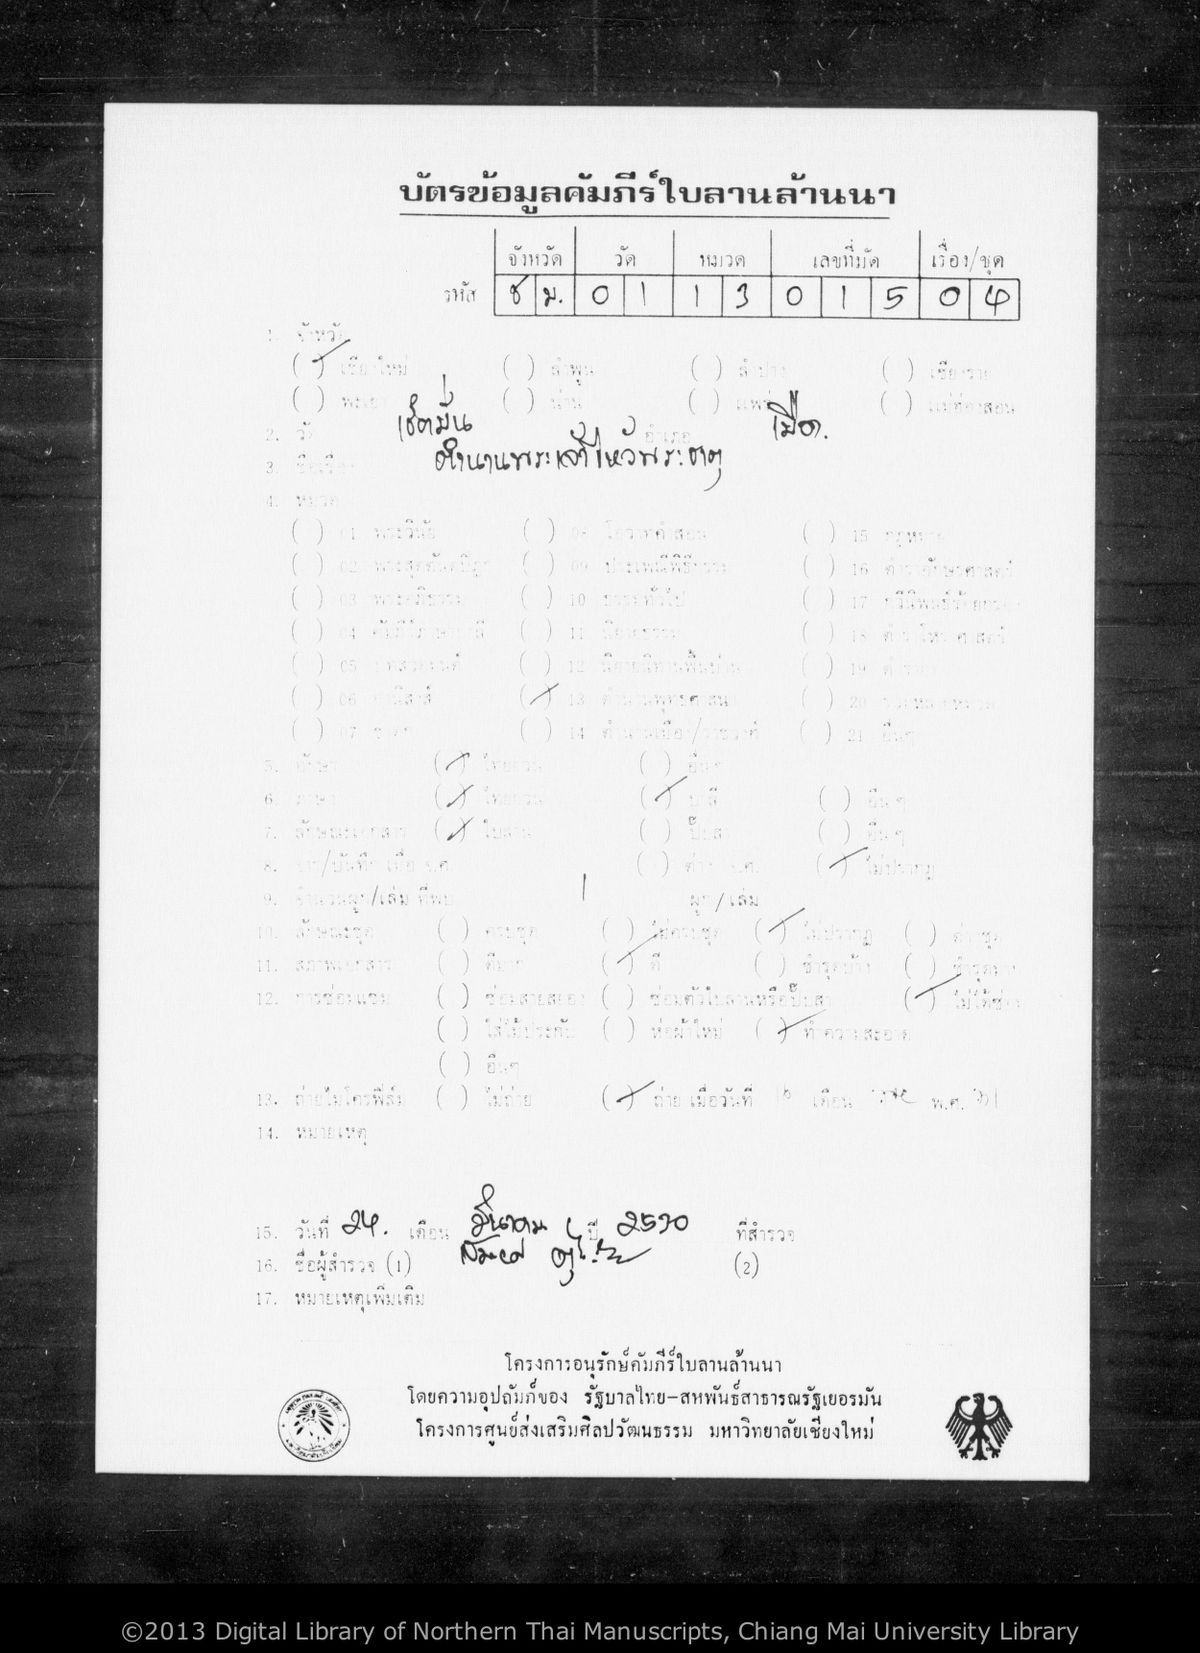 บัตรข้อมูลคัมภีร์ใบลานล้านนา
จังหวัด วัด หมวด เลขที่มัด เรื่อง/ชุด
รหัส ช ม. 0 1 1 3 0 1 5 0 4
1. จังหวัด
(✓) เชียงใหม่ ( ) ลำพูน ( ) ลำปาง ( ) เชียงราย
( ) พะเยา ( ) น่าน ( ) แพร่ ( ) แม่ฮ่องสอน
2. วัด เชตมั่น อำเภอ เมือง.
3. ชื่อเรื่อง ตำนานพระเจ้าไหว้พระธาตุ
4. หมวด
( ) 01 พระวินัย ( ) 08 โอวาทคำสอน ( ) 15 กฎหมาย
( ) 02 พระสุตตันตปิฎก ( ) 09 ประเพณีพิธีกรรม ( ) 16 ตำราอักษรศาสตร์
( ) 03 พระอภิธรรม ( ) 10 ธรรมทั่วไป ( ) 17
( ) 04 คัมภีร์ภาษาบาลี ( ) 11 นิยายธรรม ( ) 18 ตำราโหราศาสตร์
( ) 05 บทสวดมนต์ ( ) 12 นิยายนิทานพื้นบ้าน ( ) 19 ตำรายา
( ) 06 อานิสงส์ (✓) 13 ตำนานพุทธศาสนา ( ) 20 รวมหลายหมวด
( ) 07 ชาดก ( ) 14 ตำนานเมือง/ราชวงศ์ ( ) 21 อื่นๆ
5. อักษร (✓) ไทยยวน ( ) อื่นๆ
6. ภาษา (✓) ไทยยวน (✓) บาลี ( ) อื่นๆ
7. ลักษณะเอกสาร (✓) ใบลาน ( ) ปั๊บสา ( ) อื่นๆ
8. จาร/บันทึก เมื่อ จ.ศ. ( ) (✓) ไม่ปรากฏ
9. จำนวนผูก/เล่ม ที่พบ 1 ผูก/เล่ม
10. ลักษณะชุด ( ) ครบชุด ( ) ไม่ครบชุด (✓) ไม่ปรากฏ ( ) ต่างชุด
11. สภาพเอกสาร ( ) ดีมาก (✓) ดี ( ) ชำรุดบ้าง ( ) ชำรุดมาก
12. การซ่อมแซม ( ) ซ่อมสายสยอง ( ) ซ่อมตัวใบลานหรือปั๊บสา (✓) ไม่ได้ซ่อม
( ) ใส่ไม้ประกับ ( ) ห่อผ้าใหม่ (✓) ทำความสะอาด
( ) อื่นๆ
13. ถ่ายไมโครฟิล์ม ( ) ไม่ถ่าย (✓) ถ่าย เมื่อวันที่ เดือน พ.ศ.
14. หมายเหตุ
15. วันที่ 24. เดือน มีนาคม ปี 2530 ที่สำรวจ
16. ชื่อผู้สำรวจ (1) (2)
17. หมายเหตุเพิ่มเติม
โครงการอนุรักษ์คัมภีร์ใบลานล้านนา
โดยความอุปถัมภ์ของ รัฐบาลไทย-สหพันธ์สาธารณรัฐเยอรมัน
โครงการศูนย์ส่งเสริมศิลปวัฒนธรรม มหาวิทยาลัยเชียงใหม่
©2013 Digital Library of Northern Thai Manuscripts, Chiang Mai University Library